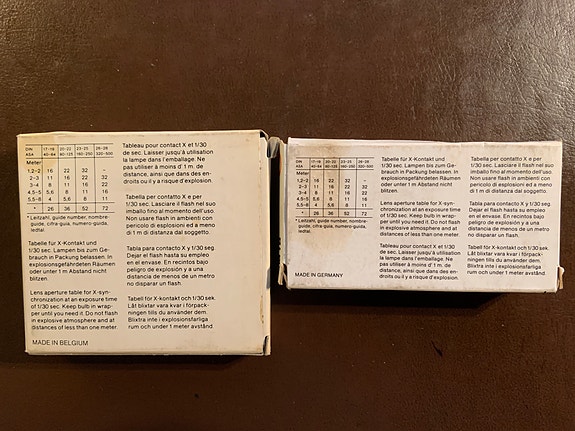 DIN 17-19 20-22 23-25 26-28
ASA 40-64 80-125 160-250 320-500
Meter
1,2-2 16 22 32 –
2-3 11 16 22 32
3-4 8 11 16 22
4,5-5 5,6 8 11 16
5,5-8 4 5,6 8 11
* 26 36 52 72
* Leitzahl, guide number, nombre-
guide, cifra-guia, numero-guida,
ledtal.
Tabelle für X-Kontakt und
1/30 sec. Lampen bis zum
Gebrauch in Packung belassen. In
explosionsgefährdeten Räumen
oder unter 1 m Abstand nicht
blitzen.
Lens aperture table for X-syn-
chronization at an exposure time
of 1/30 sec. Keep bulb in wrap-
per until you need it. Do not flash
in explosive atmosphere and at
distances of less than one meter.
MADE IN BELGIUM
Tableau pour contact X et 1/30
de sec. Laisser jusqu'à utilisation
la lampe dans l'emballage. Ne
pas utiliser à moins d' 1 m. de
distance, ainsi que dans des en-
droits ou il y a risque d'explosion.
Tabella per contatto X e per
1/30 sec. Lasciare il flash nel suo
imballo fino al momento dell'uso.
Non usare flash in ambienti con
pericolo di esplosioni ed a meno
di 1 m di distanza dal soggetto.
Tabla para contacto X y 1/30 seg.
Dejar el flash hasta su empleo
en el envase. En recintos bajo
peligro de explosión y a una
distancia de menos de un metro
no disparar un flash.
Tabell för X-kontakt och 1/30 sek.
Låt blixtar vara kvar i förpack-
ningen tills du använder dem.
Blixtra inte i explosionsfarliga
rum och under 1 meter avstånd.
DIN 17-19 20-22 23-25 26-28
ASA 40-64 80-125 160-250 320-500
Meter
1,2-2 16 22 32 –
2-3 11 16 22 32
3-4 8 11 16 22
4,5-5 5,6 8 11 16
5,5-8 4 5,6 8 11
* 26 36 52 72
* Leitzahl, guide number, nombre-
guide, cifra-guia, numero-guida,
ledtal.
MADE IN GERMANY
Tabelle für X-Kontakt und
1/30 sec. Lampen bis zum Ge-
brauch in Packung belassen. In
explosionsgefährdeten Räumen
oder unter 1 m Abstand nicht
blitzen.
Lens aperture table for X-syn-
chronization at an exposure time
of 1/30 sec. Keep bulb in wrap-
per until you need it. Do not flash
in explosive atmosphere and at
distances of less than one meter.
Tableau pour contact X et 1/30
de sec. Laisser jusqu'à utilisation
la lampe dans l'emballage. Ne
pas utiliser à moins d' 1 m. de
distance, ainsi que dans des en-
droits ou il y a risque d'explosion.
Tabella per contatto X e per
1/30 sec. Lasciare il flash nel suo
imballo fino al momento dell'uso.
Non usare flash in ambienti con
pericolo di esplosioni ed a meno
di 1 m di distanza dal soggetto.
Tabla para contacto X y 1/30 seg.
Dejar el flash hasta su empleo
en el envase. En recintos bajo
peligro de explosión y a una
distancia de menos de un metro
no disparar un flash.
Tabell för X-kontakt och 1/30 sek.
Låt blixtar vara kvar i förpack-
ningen tills du använder dem.
Blixtra inte i explosionsfarliga
rum och under 1 meter avstånd.